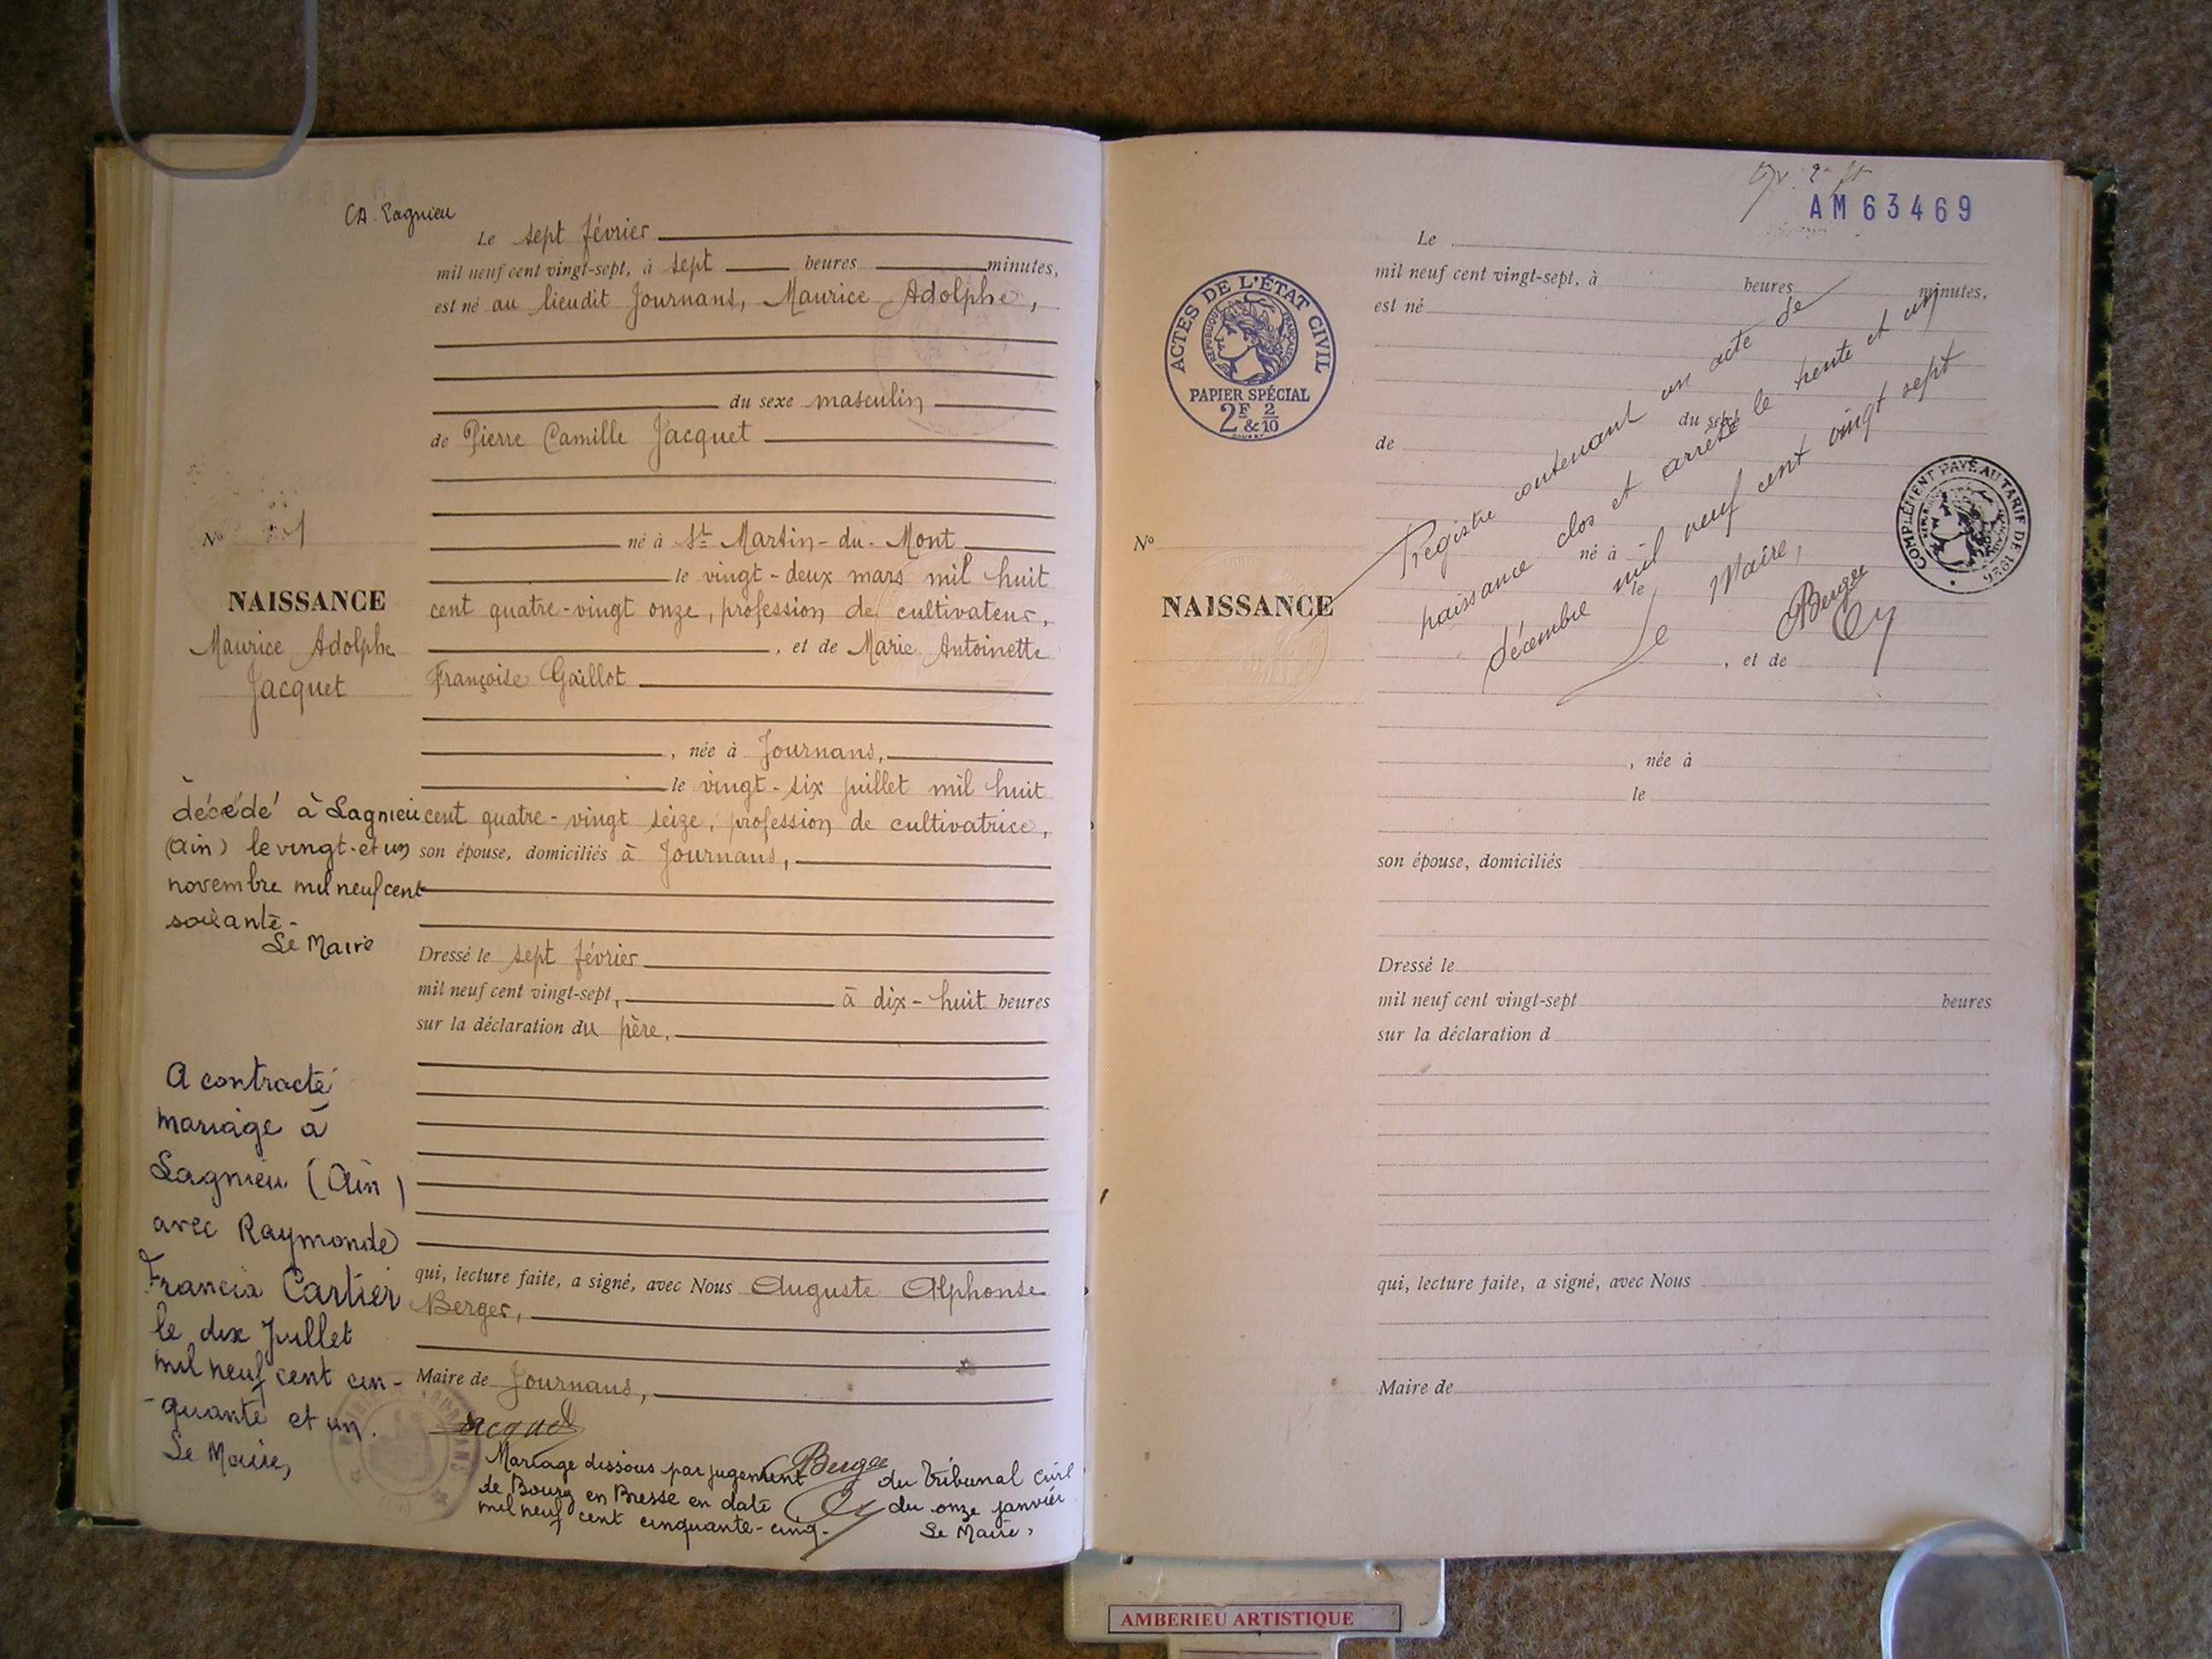 CA. Lagnieu
Le sept février
mil neuf cent vingt-sept, à sept heures minutes,
est né au lieudit Journans, Maurice Adolphe,
du sexe masculin
de Pierre Camille Jacquet
né à St Martin-du-Mont
le vingt-deux mars mil huit
cent quatre-vingt onze, profession de cultivateur,
, et de Marie Antoinette
Françoise Gaillot
, née à Journans,
le vingt-six juillet mil huit
cent quatre-vingt seize, profession de cultivatrice,
son épouse, domiciliés à Journans,
Dressé le sept février
mil neuf cent vingt-sept, à dix-huit heures
sur la déclaration du père,
qui, lecture faite, a signé, avec Nous Auguste Alphonse
Berger,
Maire de Journans,
Jacquet
Berger
No 1
NAISSANCE
Maurice Adolphe
Jacquet
décédé à Lagnieu
(Ain) le vingt-et un
novembre mil neuf cent
soixante-
Le Maire
A contracté
mariage à
Lagnieu (Ain)
avec Raymonde
Francia Cartier
le dix Juillet
mil neuf cent cin-
-quante et un.
Le Maire,
Mariage dissous par jugement du Tribunal Civil
de Bourg en Bresse en date du onze janvier
mil neuf cent cinquante-cinq-
Le Maire,
AM63469
ACTES DE L'ÉTAT CIVIL
RÉPUBLIQUE FRANÇAISE
PAPIER SPÉCIAL
2F & 2/10
COMPLÉMENT PAYÉ AU TARIF DE 1926
Le
mil neuf cent vingt-sept, à heures minutes,
est né
du sexe
de
No
né à
le
NAISSANCE
, et de
, née à
le
son épouse, domiciliés
Dressé le
mil neuf cent vingt-sept heures
sur la déclaration d
qui, lecture faite, a signé, avec Nous
Maire de
Registre contenant un acte de
naissance clos et arrêté le trente et un
décembre mil neuf cent vingt sept
Le Maire,
Berger
AMBERIEU ARTISTIQUE